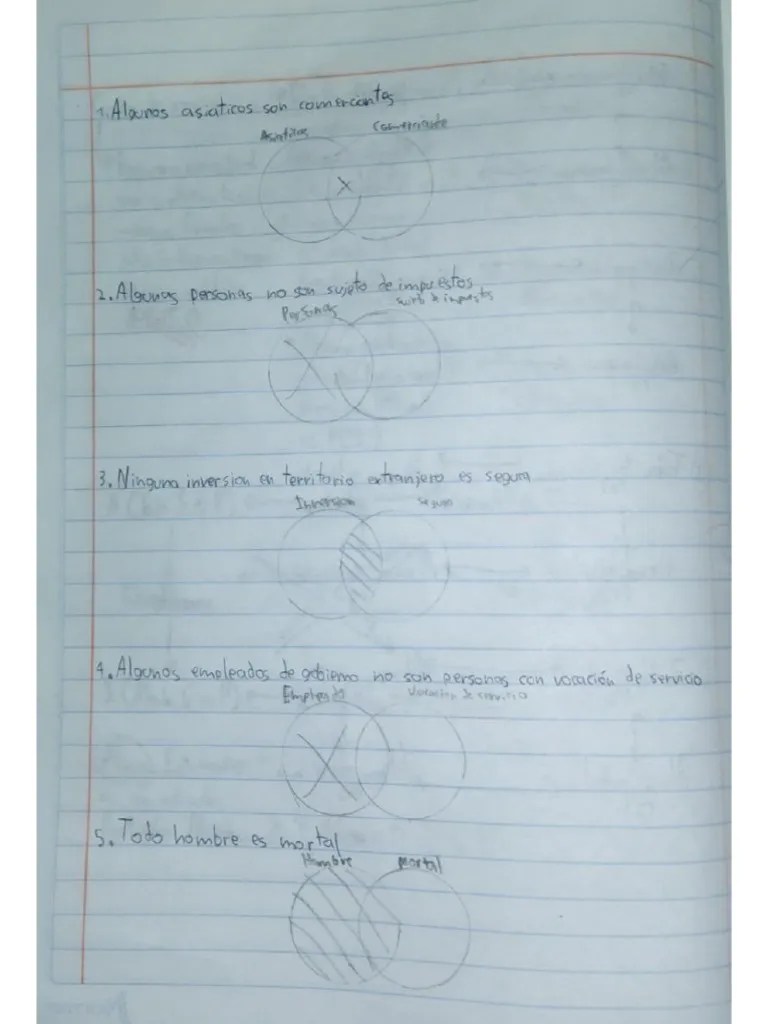 1. Algunos asiaticos son comerciantes
Asiaticos Comerciante
X
2. Algunas personas no son sujeto de impuestos
Personas Sujeto de impuestos
X
3. Ninguna inversion en territorio extranjero es segura
Inversion Segura
4. Algunos empleados de gobierno no son personas con vocación de servicio
Empleado Vocación de servicio
X
5. Todo hombre es mortal
Hombre Mortal